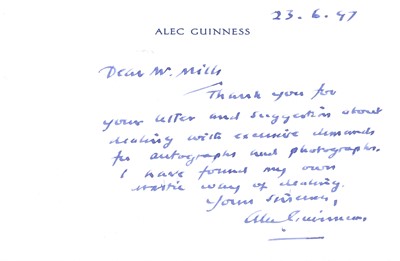 23.6.97
ALEC GUINNESS
Dear Mr. Mills
Thank you for
your letter and suggestion about
dealing with excessive demands
for autographs and photographs.
I have found my own
ways of dealing.
Yours sincerely,
Alec Guinness